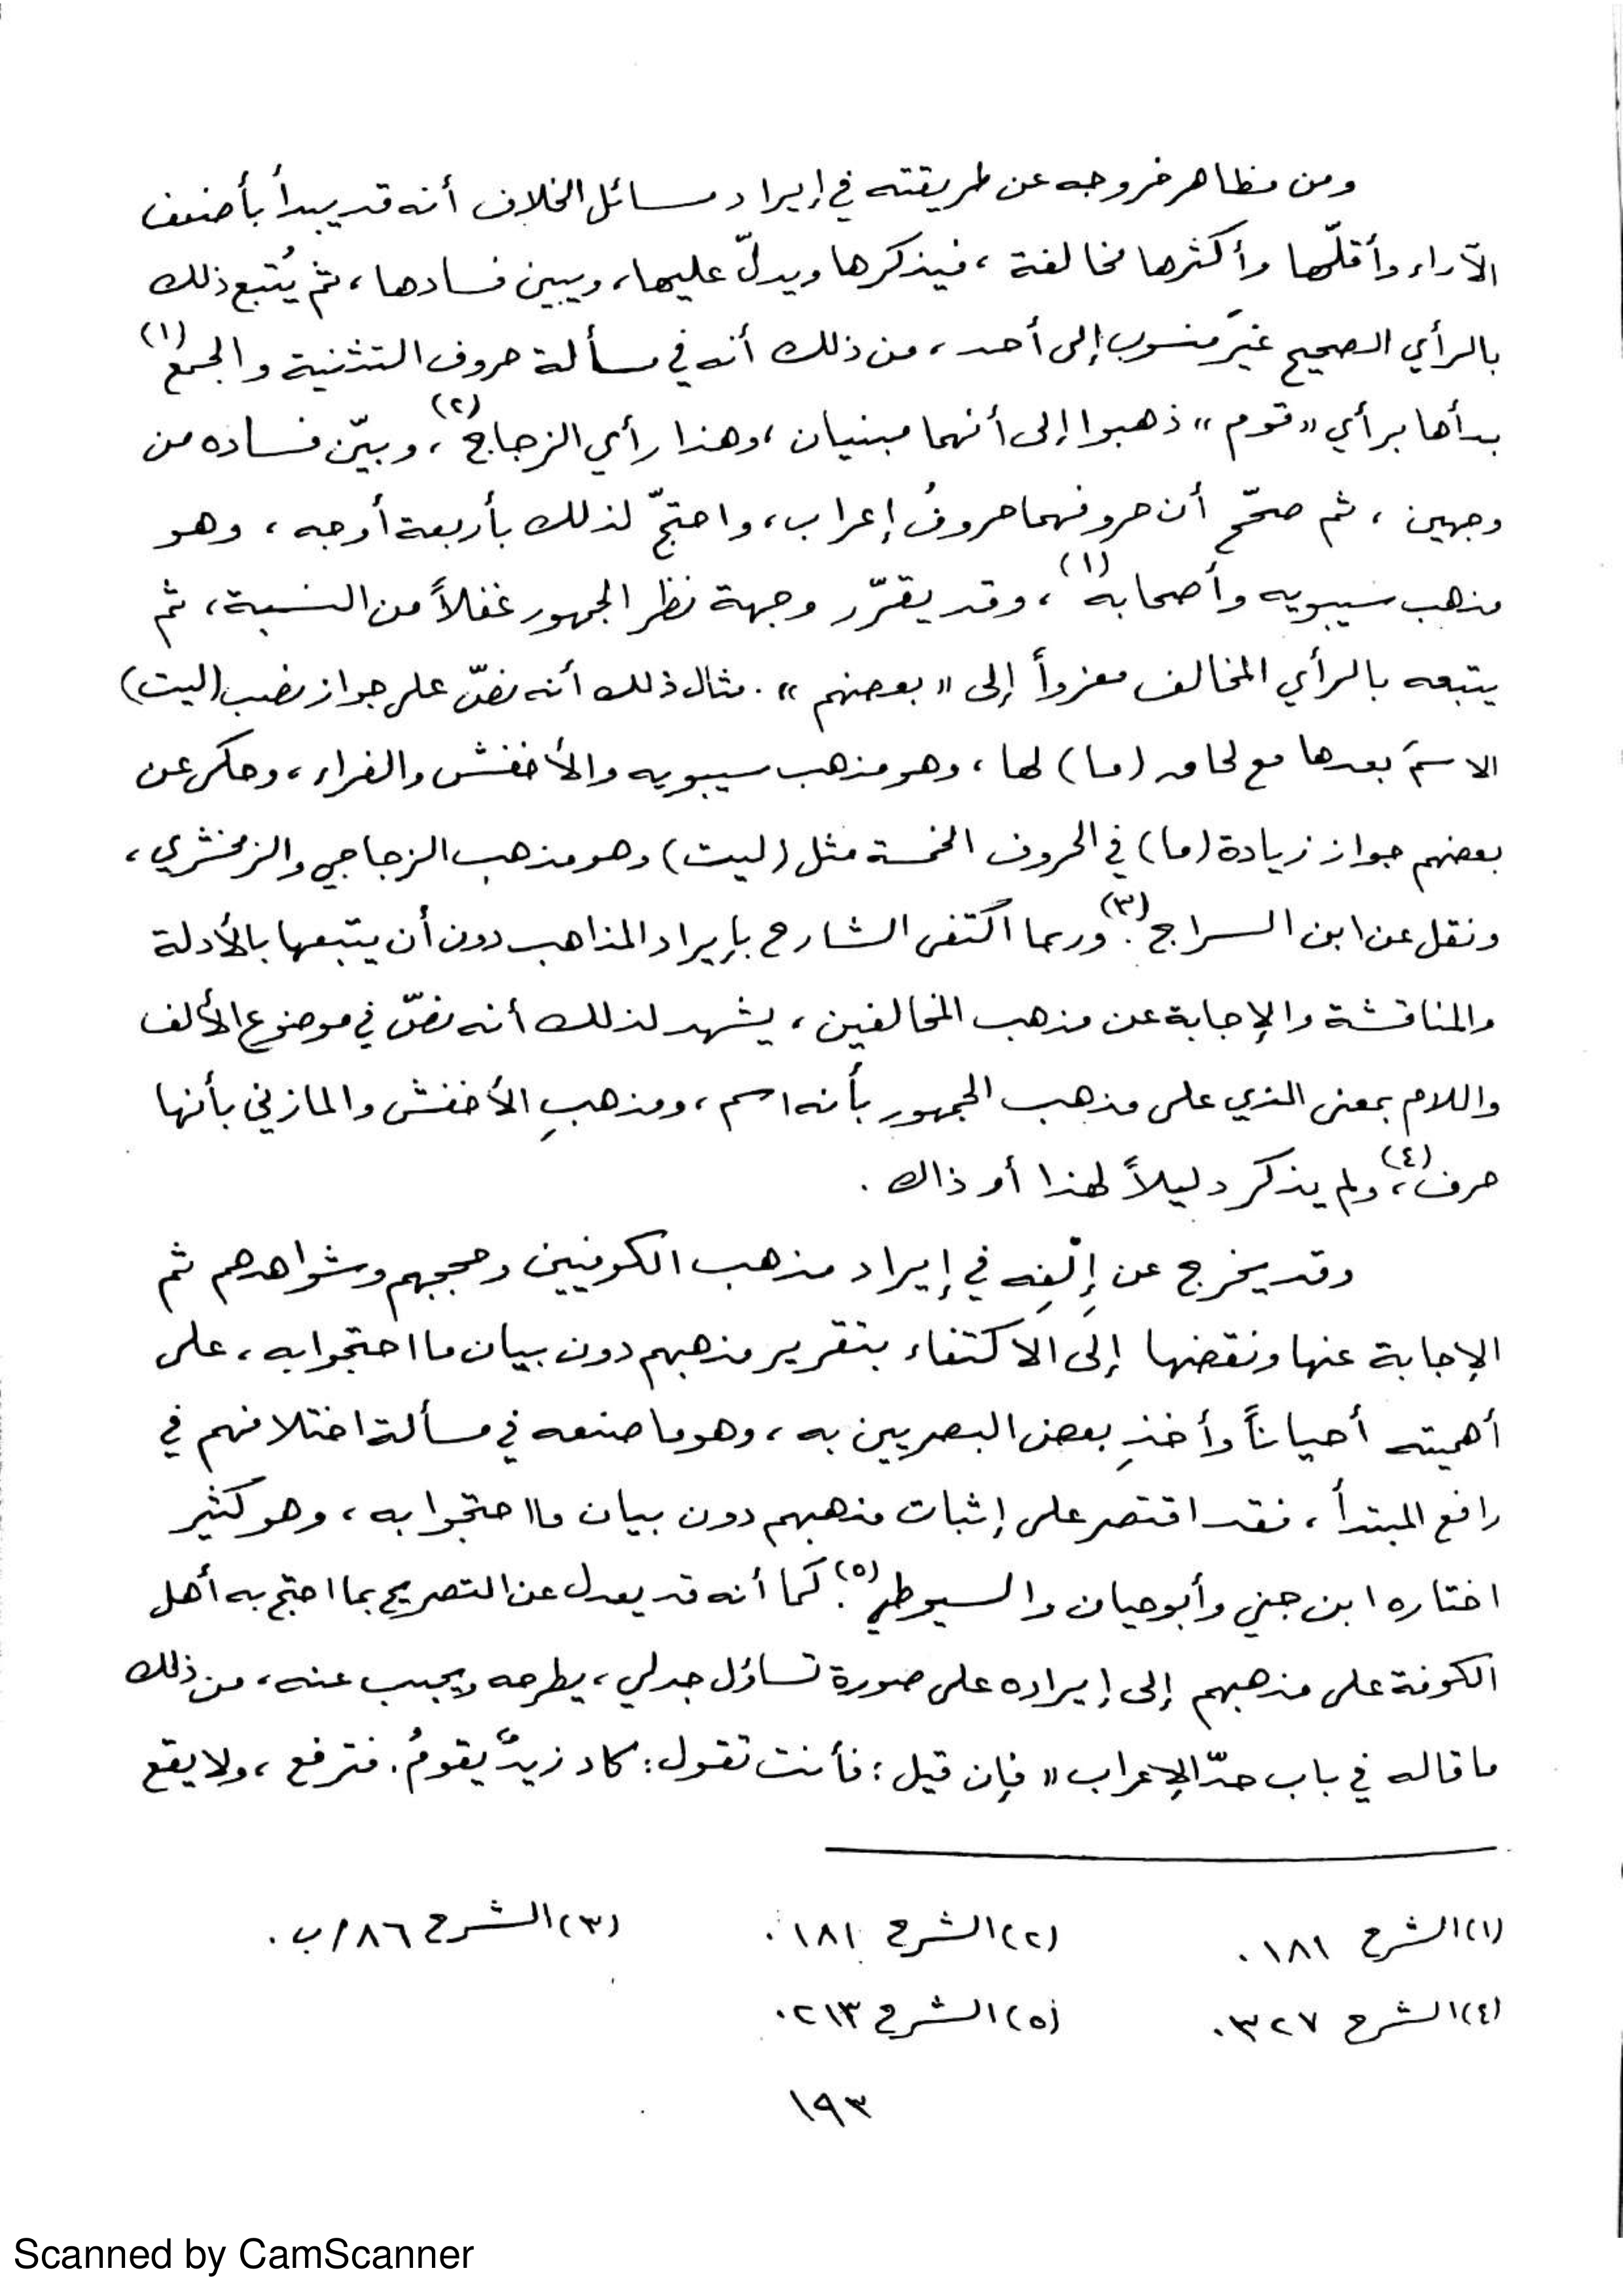 ومن مظاهر خروجه عن طريقته في إيراد مسائل الخلاف أنه قد يبدأ بأضعف
الآراء وأقلّها وأكثرها مخالفة، فيذكرها ويدلّ عليها، ويبين فسادها، ثم يُتبع ذلك
بالرأي الصحيح غيرَ منسوب إلى أحد، من ذلك أنه في مسألة حروف التثنية والجمع (١)
بدأها برأي «قوم» ذهبوا إلى أنهما مبنيان، وهذا رأي الزجاج (٢)، وبيّن فساده من
وجهين، ثم صحّح أن حروفهما حروفُ إعراب، واحتجّ لذلك بأربعة أوجه، وهو
مذهب سيبويه وأصحابه (١)، وقد يقرّر وجهة نظر الجمهور غفلاً من النسبة، ثم
يتبعه بالرأي المخالف معزواً إلى «بعضهم». مثال ذلك أنه نصّ على جواز نصب (ليت)
الاسمَ بعدها مع لحاق (ما) لها، وهو مذهب سيبويه والأخفش والفراء، وحكى عن
بعضهم جواز زيادة (ما) في الحروف الخمسة مثل (ليت) وهو مذهب الزجاجي والزمخشري،
ونقل عن ابن السراج (٣). وربما اكتفى الشارح بإيراد المذاهب دون أن يتبعها بالأدلة
والمناقشة والإجابة عن مذهب المخالفين، يشهد لذلك أنه نصّ في موضوع الألف
واللام بمعنى الذي على مذهب الجمهور بأنه اسم، ومذهبِ الأخفش والمازني بأنها
حرف (٤)، ولم يذكر دليلاً لهذا أو ذاك.
وقد يخرج عن إِلْفِه في إيراد مذهب الكوفيين وحججهم وشواهدهم ثم
الإجابة عنها ونقضها إلى الاكتفاء بتقرير مذهبهم دون بيان ما احتجوا به، على
أهميته أحياناً وأخذِ بعض البصريين به، وهو ما صنعه في مسألة اختلافهم في
رافع المبتدأ، فقد اقتصر على إثبات مذهبهم دون بيان ما احتجوا به، وهو كثير
اختاره ابن جني وأبو حيان والسيوطي (٥). كما أنه قد يعدل عن التصريح بما احتج به أهل
الكوفة على مذهبهم إلى إيراده على صورة تساؤل جدلي، يطرحه ويجيب عنه، من ذلك
ما قاله في باب حدّ الإعراب «فإن قيل: فأنت تقول: كاد زيدٌ يقومُ. فترفع، ولا يقع
(١) الشرح ١٨١.
(٢) الشرح ١٨١.
(٣) الشرح ٨٦/ب.
(٤) الشرح ٣٢٧.
(٥) الشرح ٢١٣.
١٩٣
Scanned by CamScanner